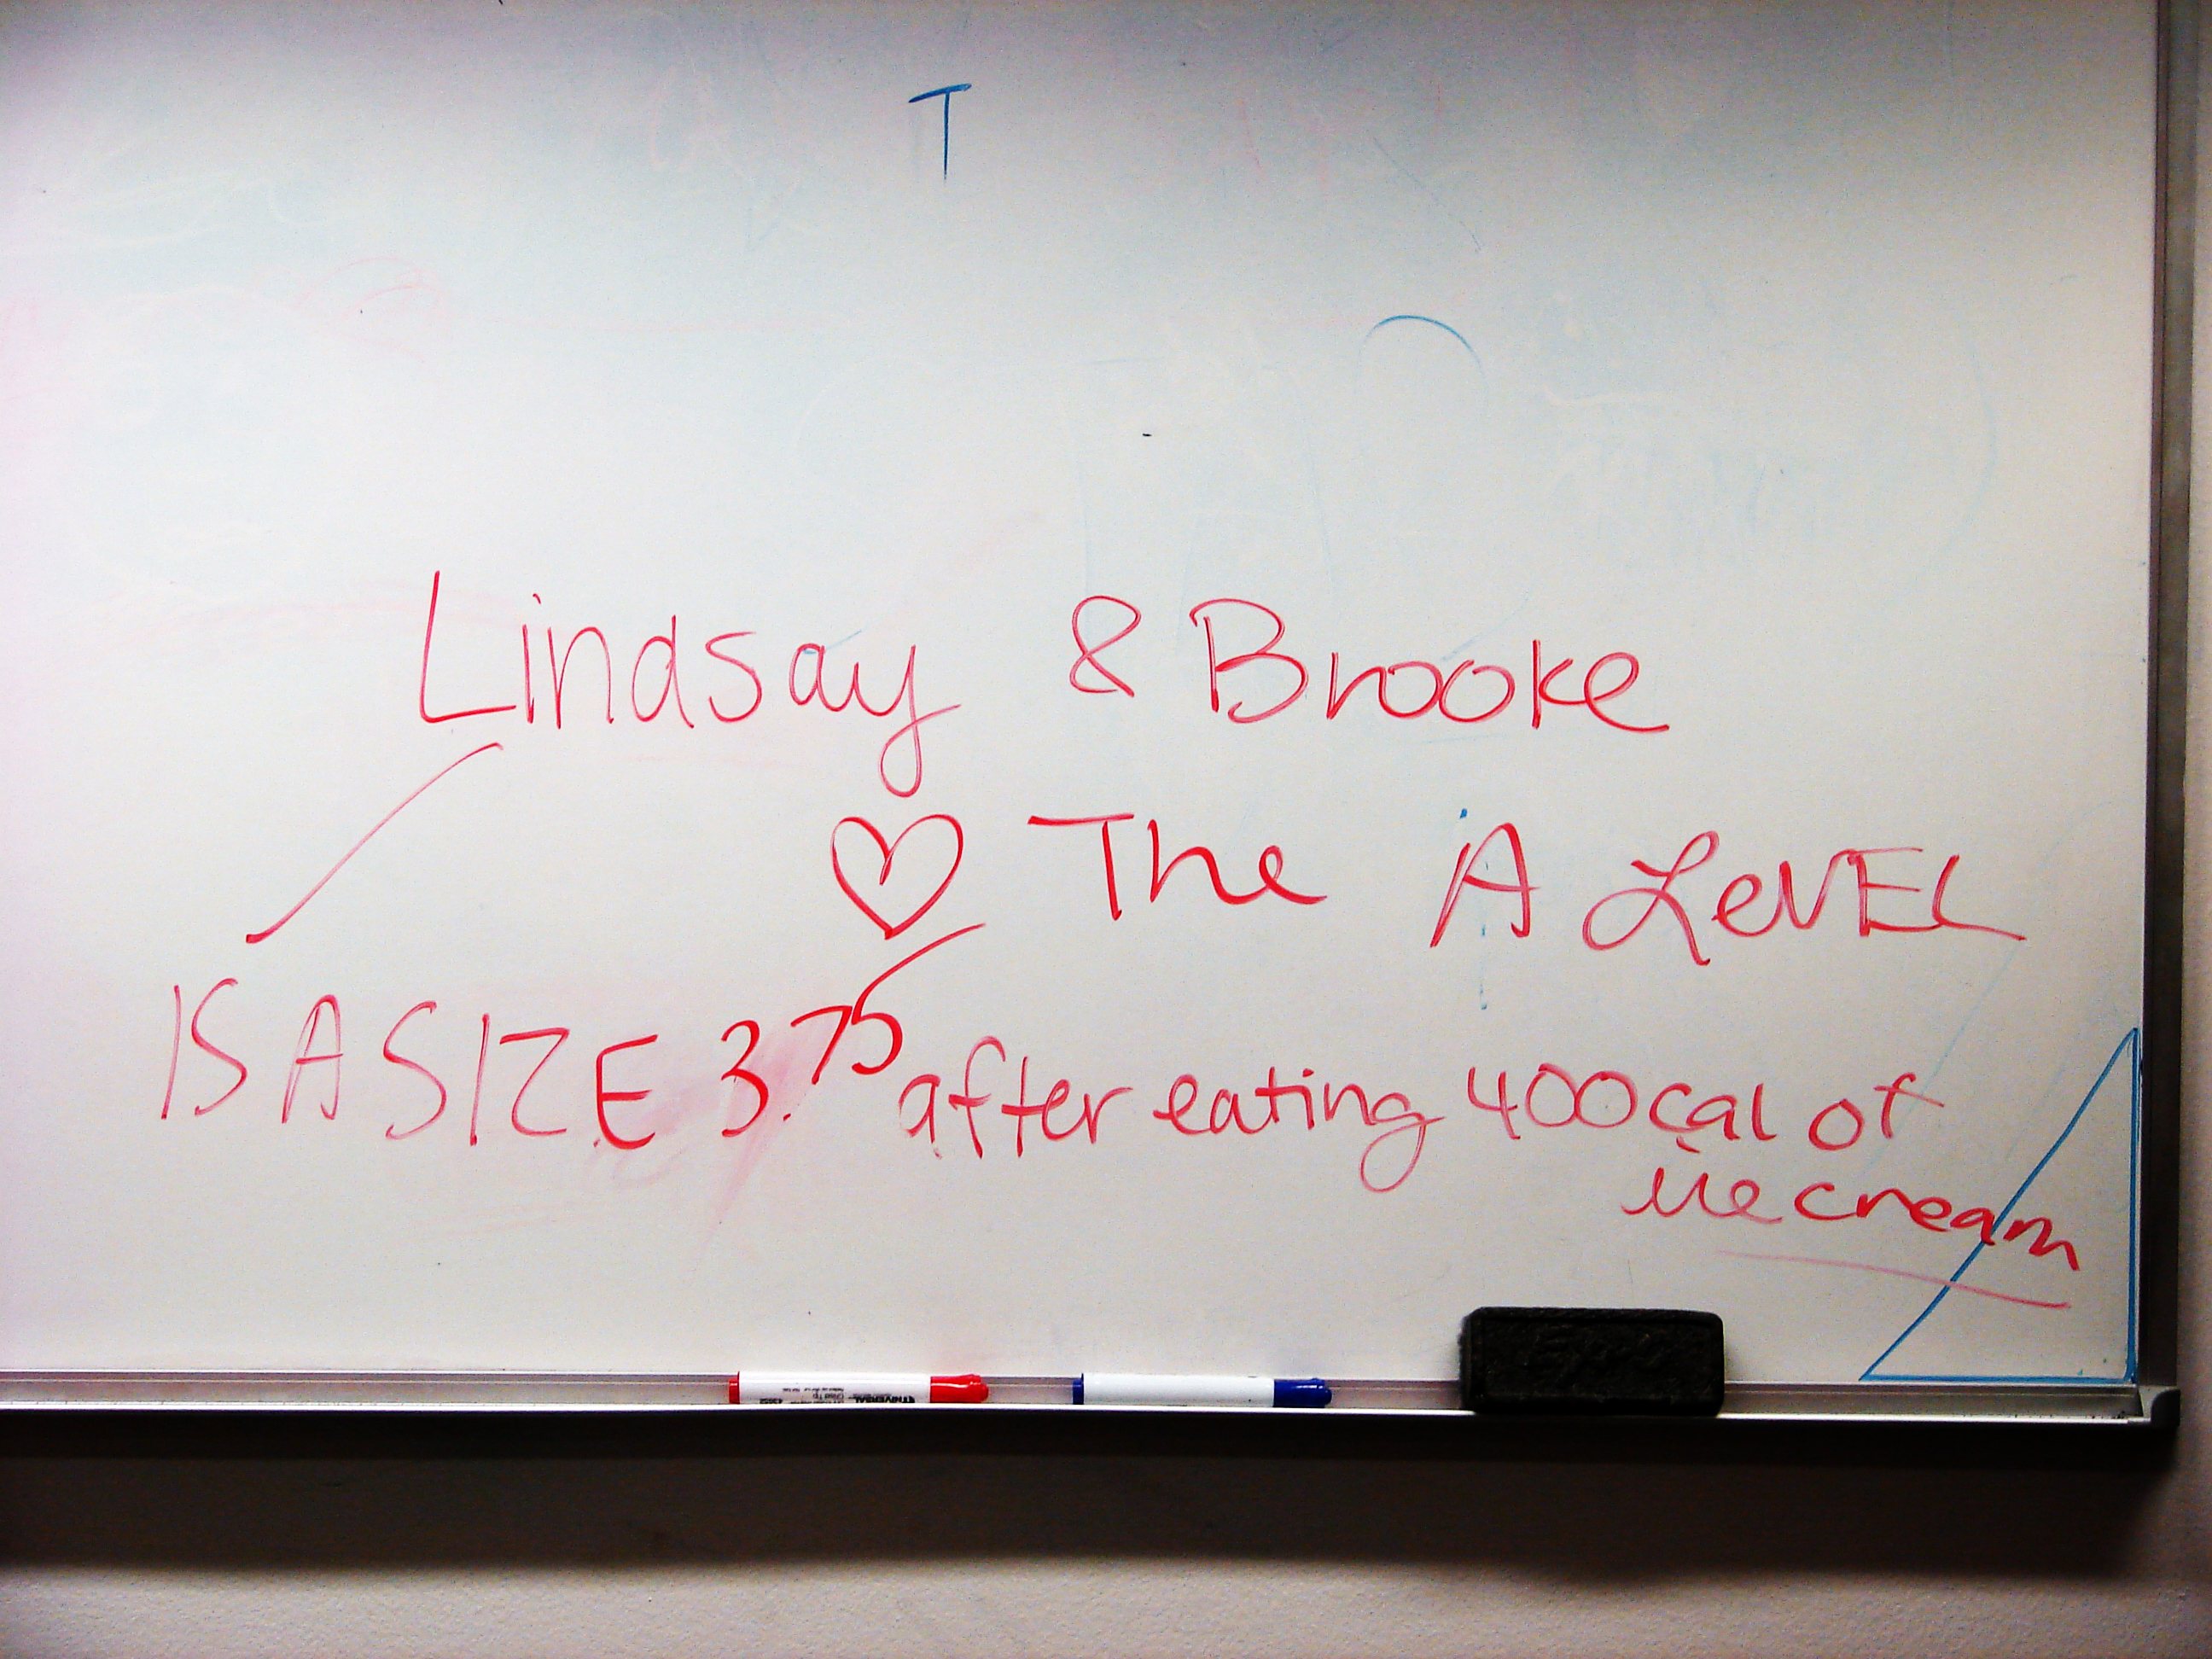 T
Lindsay & Brooke
♡ The A LeVEL
IS A SIZE 3.75 after eating 400 cal of
ice cream
UNIVERSAL